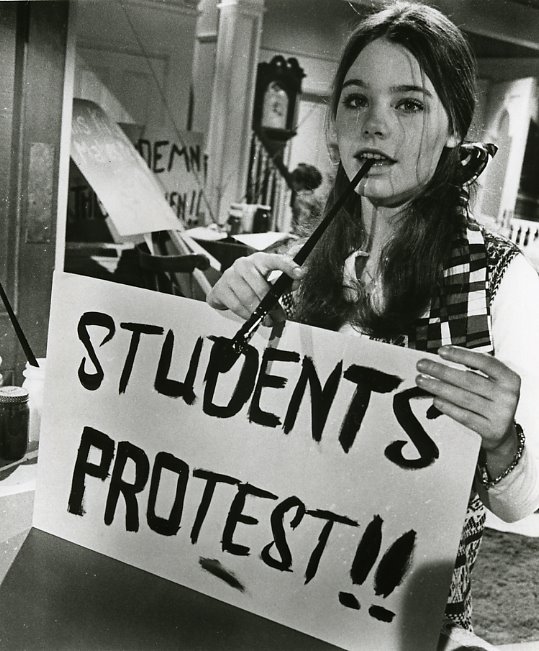 STUDENTS
PROTEST!!
DEMN